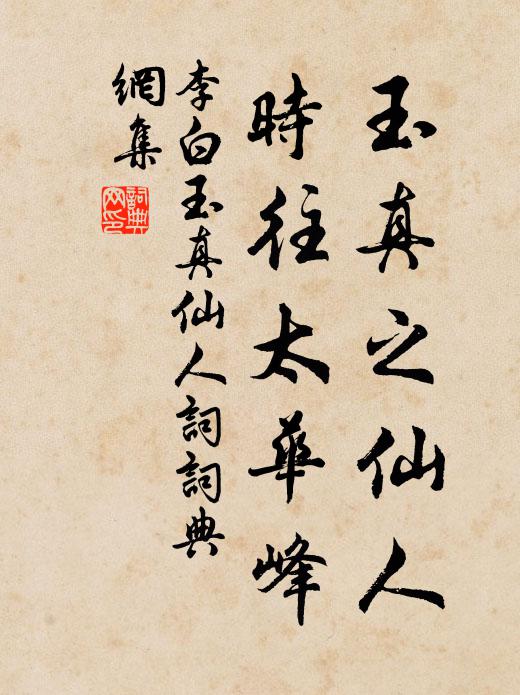 玉真之仙人
時往太華峰
李白玉真仙人詞詞典
網集
詞典網印